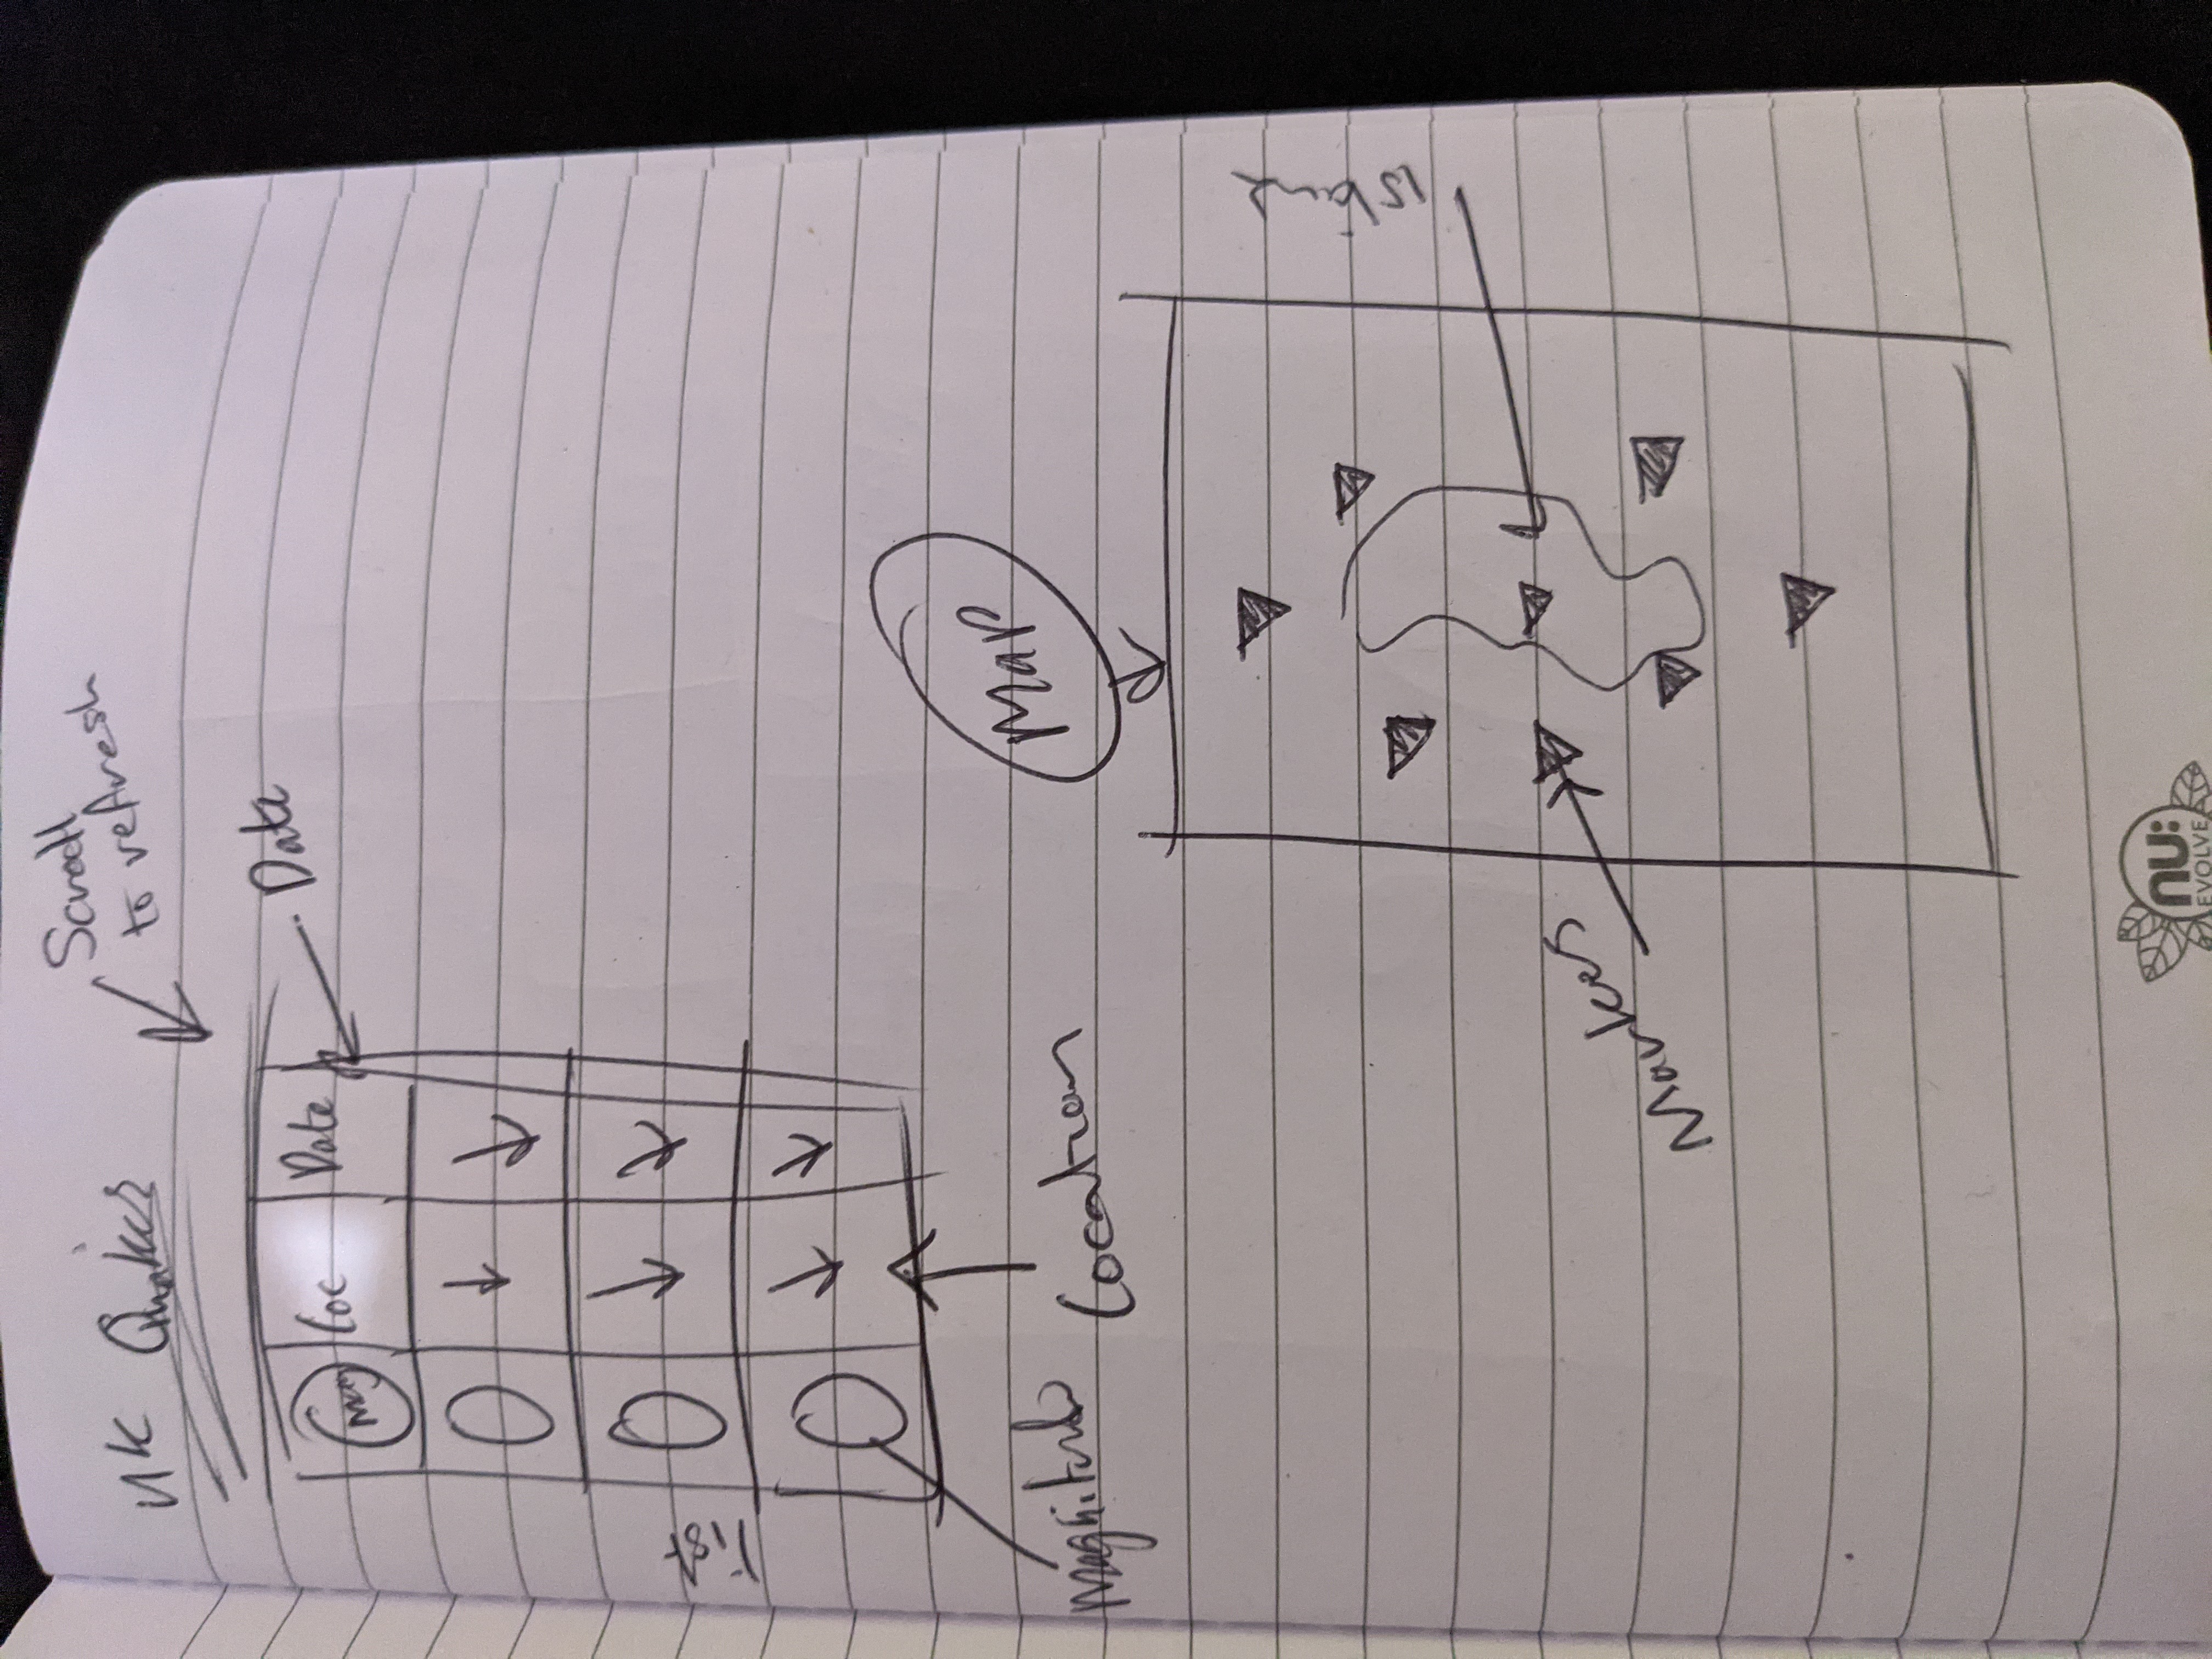 UK Quakes
Scroll
to refresh
Date
Mag
Loc
Date
List
Magnitude
Location
Map
Island
Markers
nu:
EVOLVE